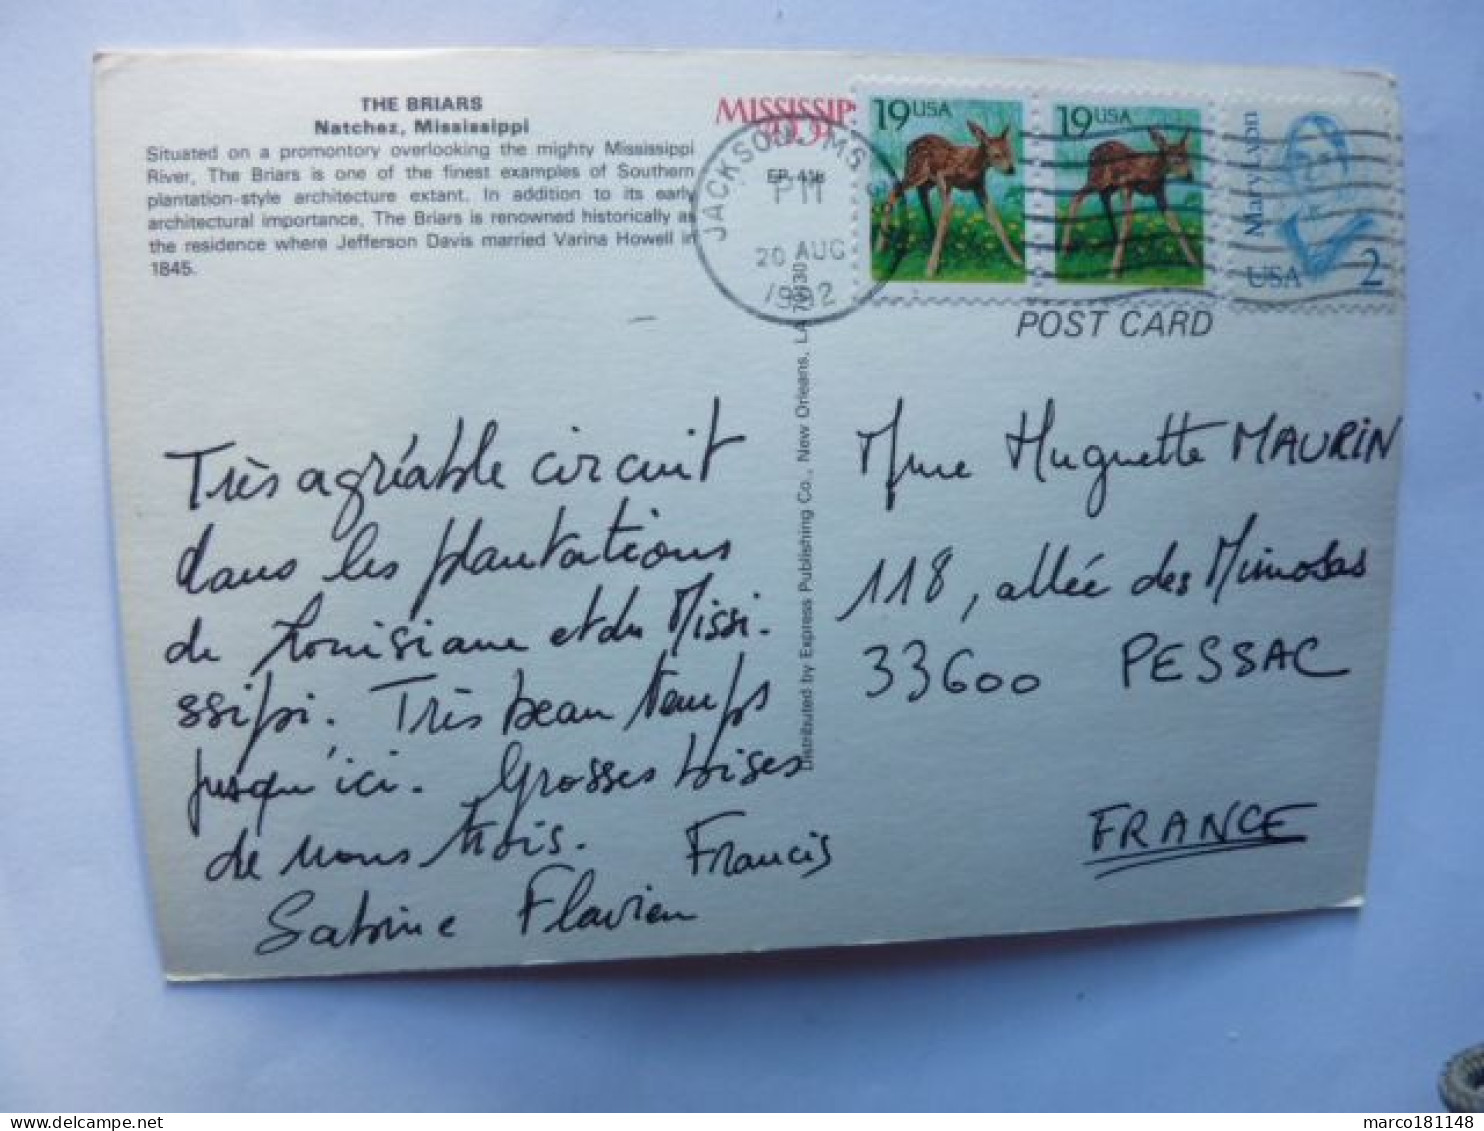 THE BRIARS
Natchez, Mississippi
Situated on a promontory overlooking the mighty Mississippi
River, The Briars is one of the finest examples of Southern
plantation-style architecture extant. In addition to its early
architectural importance, The Briars is renowned historically as
the residence where Jefferson Davis married Varina Howell in
1845.
MISSISSIP
JACKSON MS
PM
20 AUG
1992
19 USA
19 USA
Mary Lyon
USA 2
POST CARD
Distributed by Express Publishing Co., New Orleans, LA 70130
Très agréable circuit
dans les plantations
de Louisiane et du Missi.
ssipi. Très beau temps
jusqu'ici. Grosses bises
de nous trois. Francis
Sabine Flavien
Mme Huguette MAURIN
118, allée des Mimosas
33600 PESSAC
FRANCE
marco181148